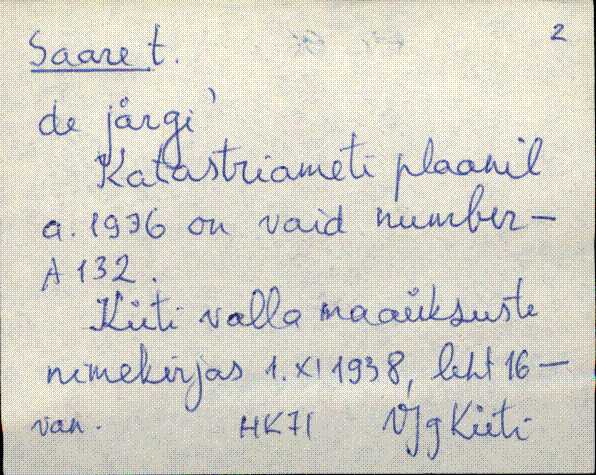 2
Saare t.
de järgi'
Katastriameti plaanil
a. 1936 on vaid number –
A 132.
Kiiti valla maaüksuste
nimekirjas 1. XI 1938, leht 16 –
van. HK71 VJg Kiiti